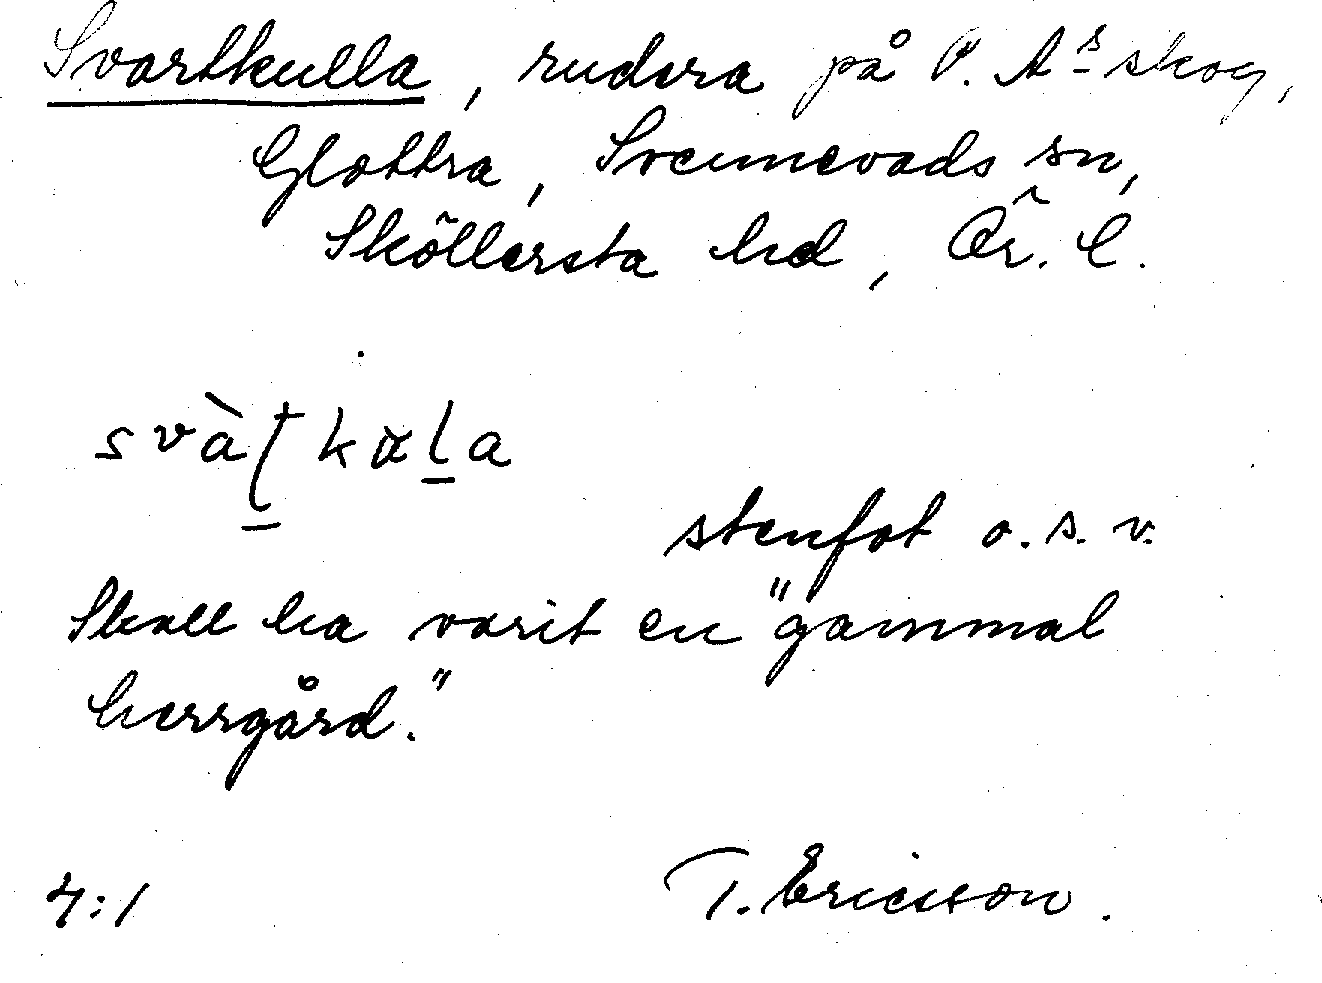 Svartkulla, rudera på P. A:s skog,
Glottra, Svennevads sn,
Sköllersta hd, Ör. l.
stenfot o.s.v.
Skall ha varit en "gammal
herrgård."
4:1 T. Ericsson.